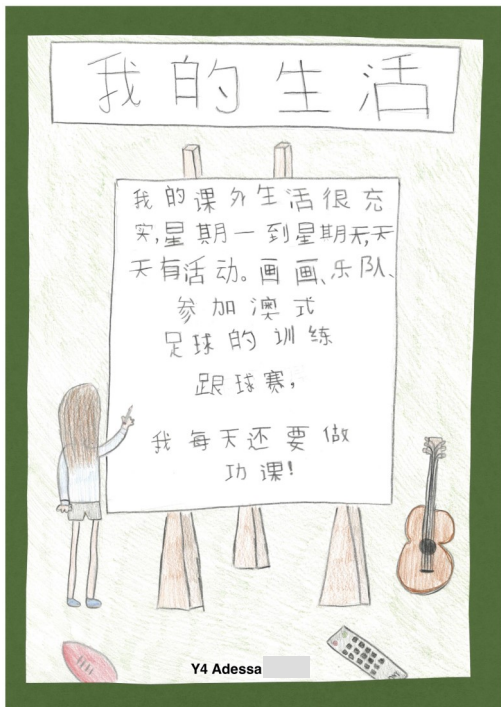 我的生活
我的课外生活很充
实,星期一到星期天,天
天有活动。画画、乐队、
参加澳式
足球的训练
跟球赛,
我每天还要做
功课!
Y4 Adessa